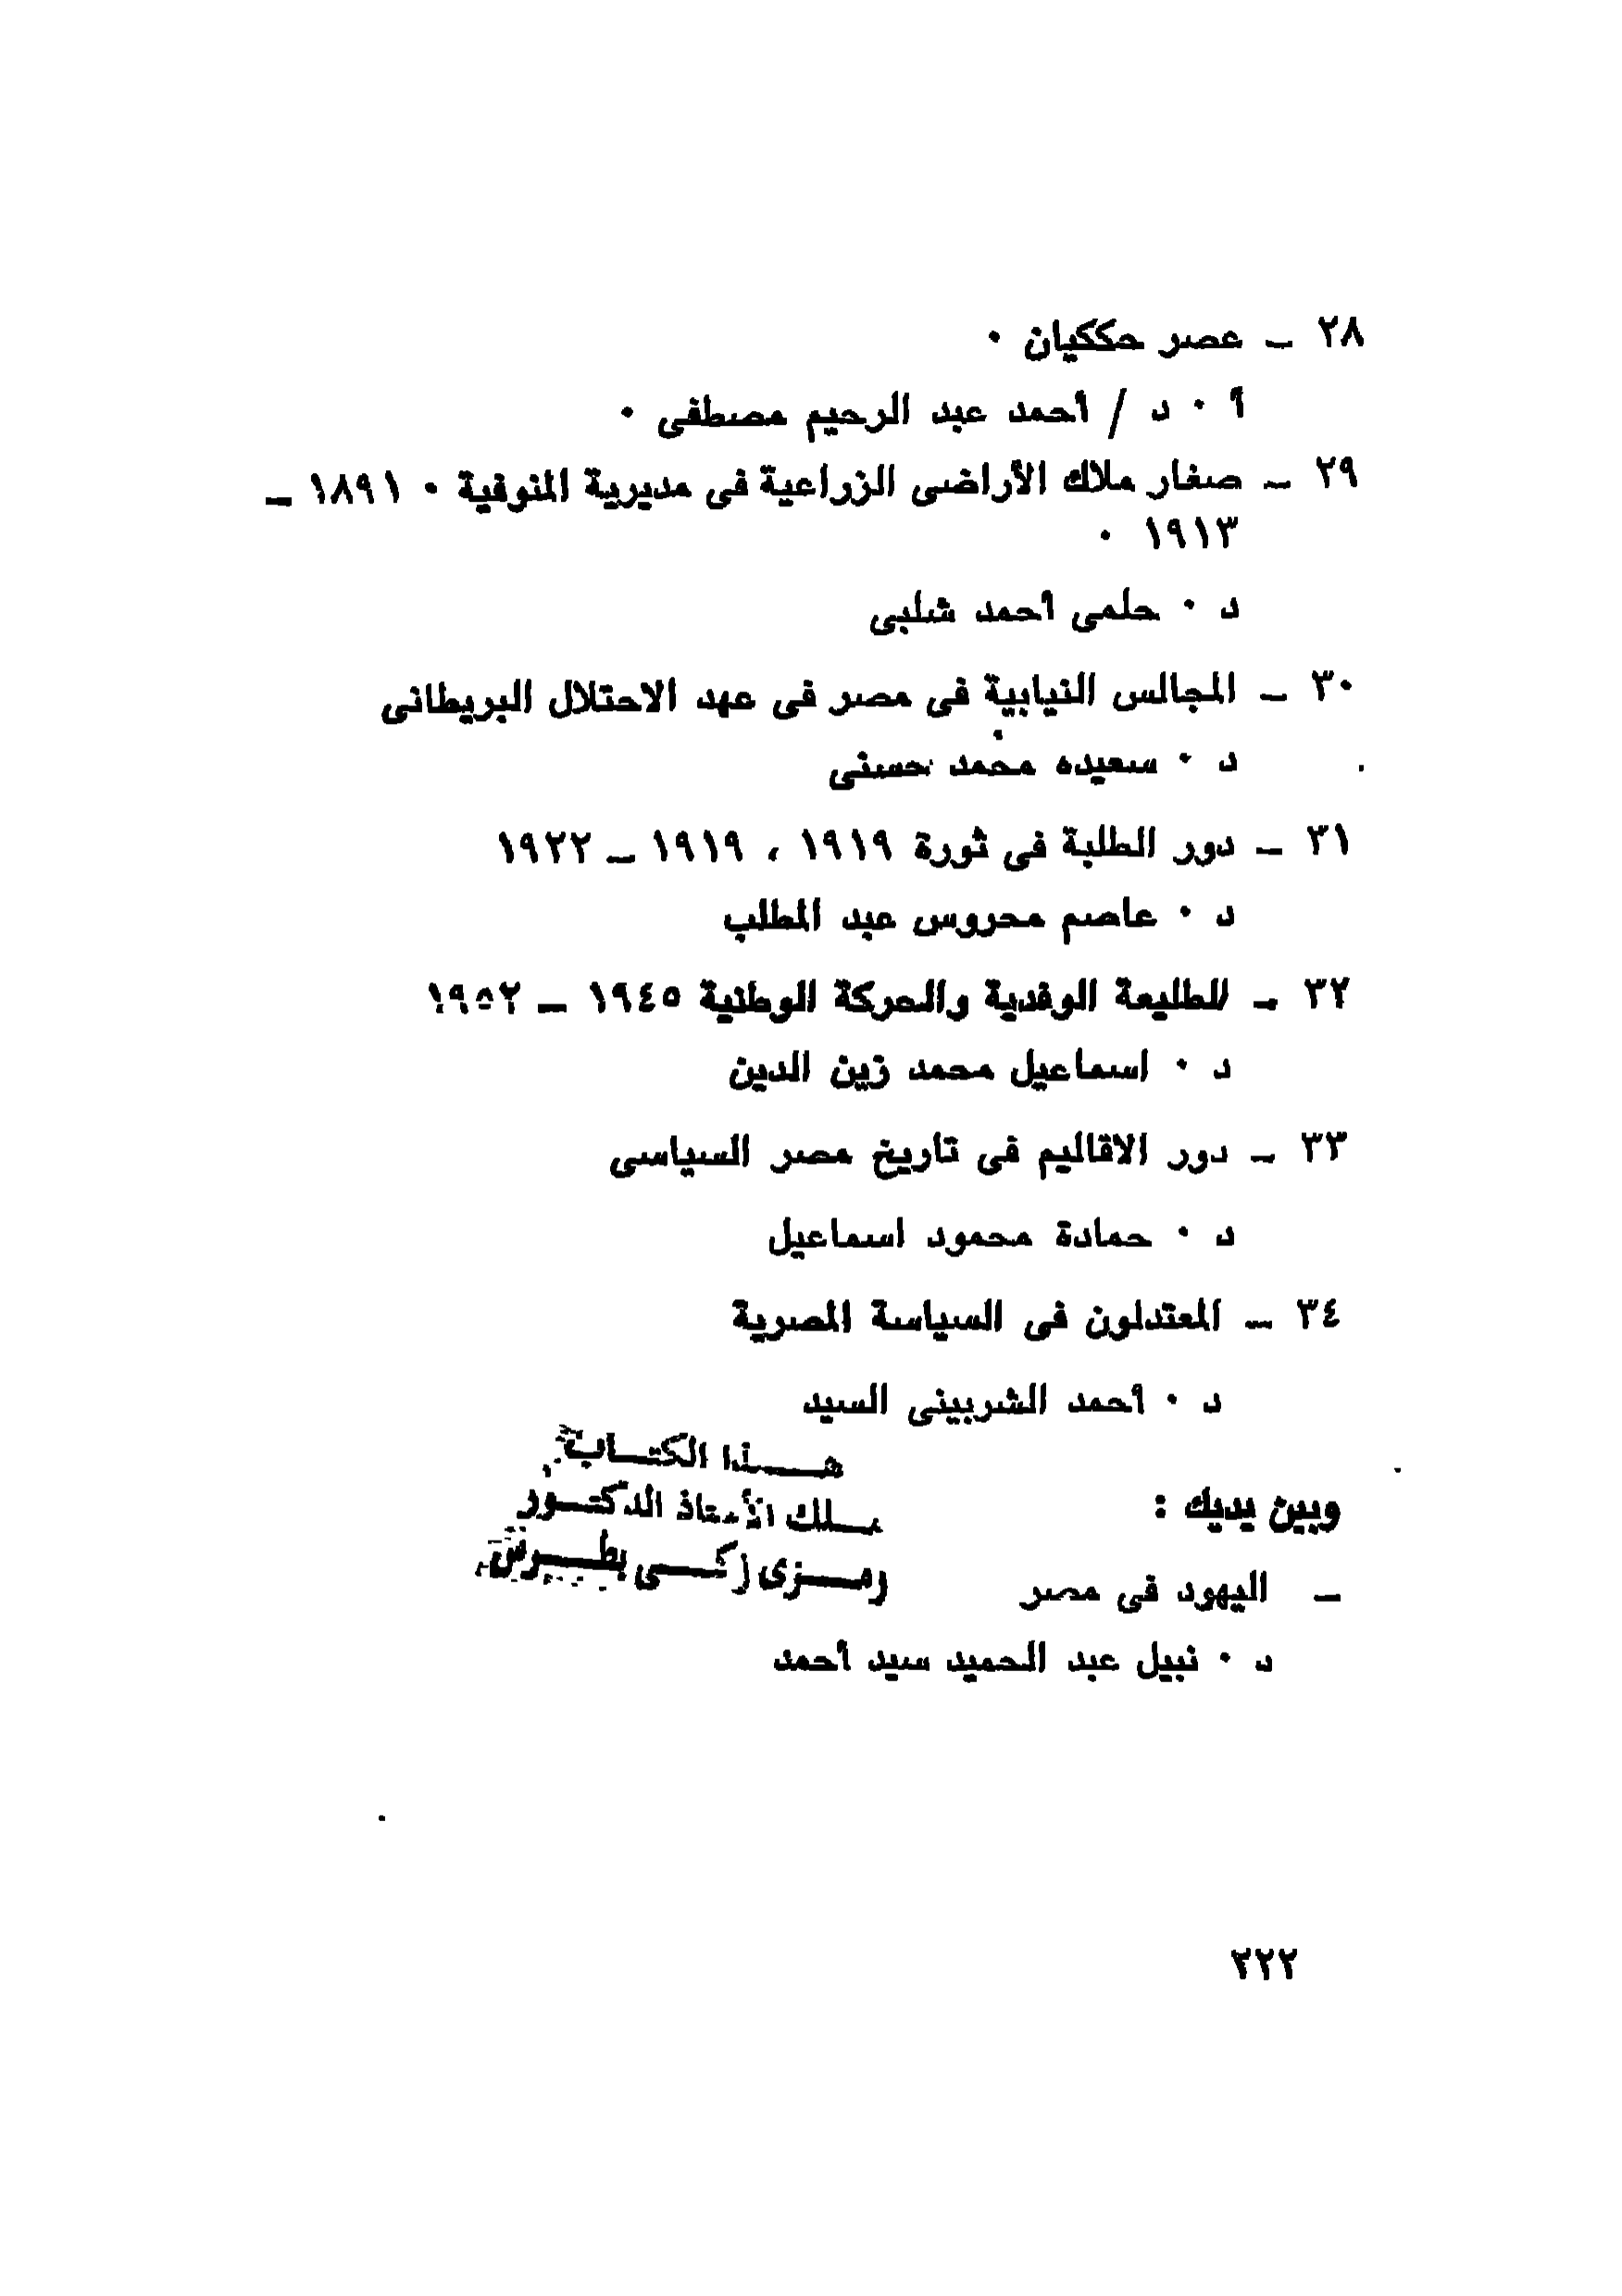 ٢٨ ـ عصر حككيان ٠
أ ٠ د / أحمد عبد الرحيم مصطفى ٠
٢٩ ـ صغار ملاك الأراضى الزراعية فى مديرية المنوفية ٠ ١٨٩١ ـ
١٩١٣ ٠
د ٠ حلمى أحمد شلبى
٣٠ ـ المجالس النيابية فى مصر فى عهد الاحتلال البريطانى
د ٠ سعيده محمد حسنى
٣١ ـ دور الطلبة فى ثورة ١٩١٩ ، ١٩١٩ ـ ١٩٢٢
د ٠ عاصم محروس عبد المطلب
٣٢ ـ الطليعة الوفدية والحركة الوطنية ١٩٤٥ ـ ١٩٥٢
د ٠ اسماعيل محمد زين الدين
٣٣ ـ دور الاقاليم فى تاريخ مصر السياسى
د ٠ حمادة محمود اسماعيل
٣٤ ـ المعتدلون فى السياسة المصرية
د ٠ أحمد الشربينى السيد
هـــذا الكتـــاب
ملك الأستاذ الدكتـور
رمـزى زكـى بطـرس
وبين يديك :
ـ اليهود فى مصر
د ٠ نبيل عبد الحميد سيد أحمد
٢٢٢